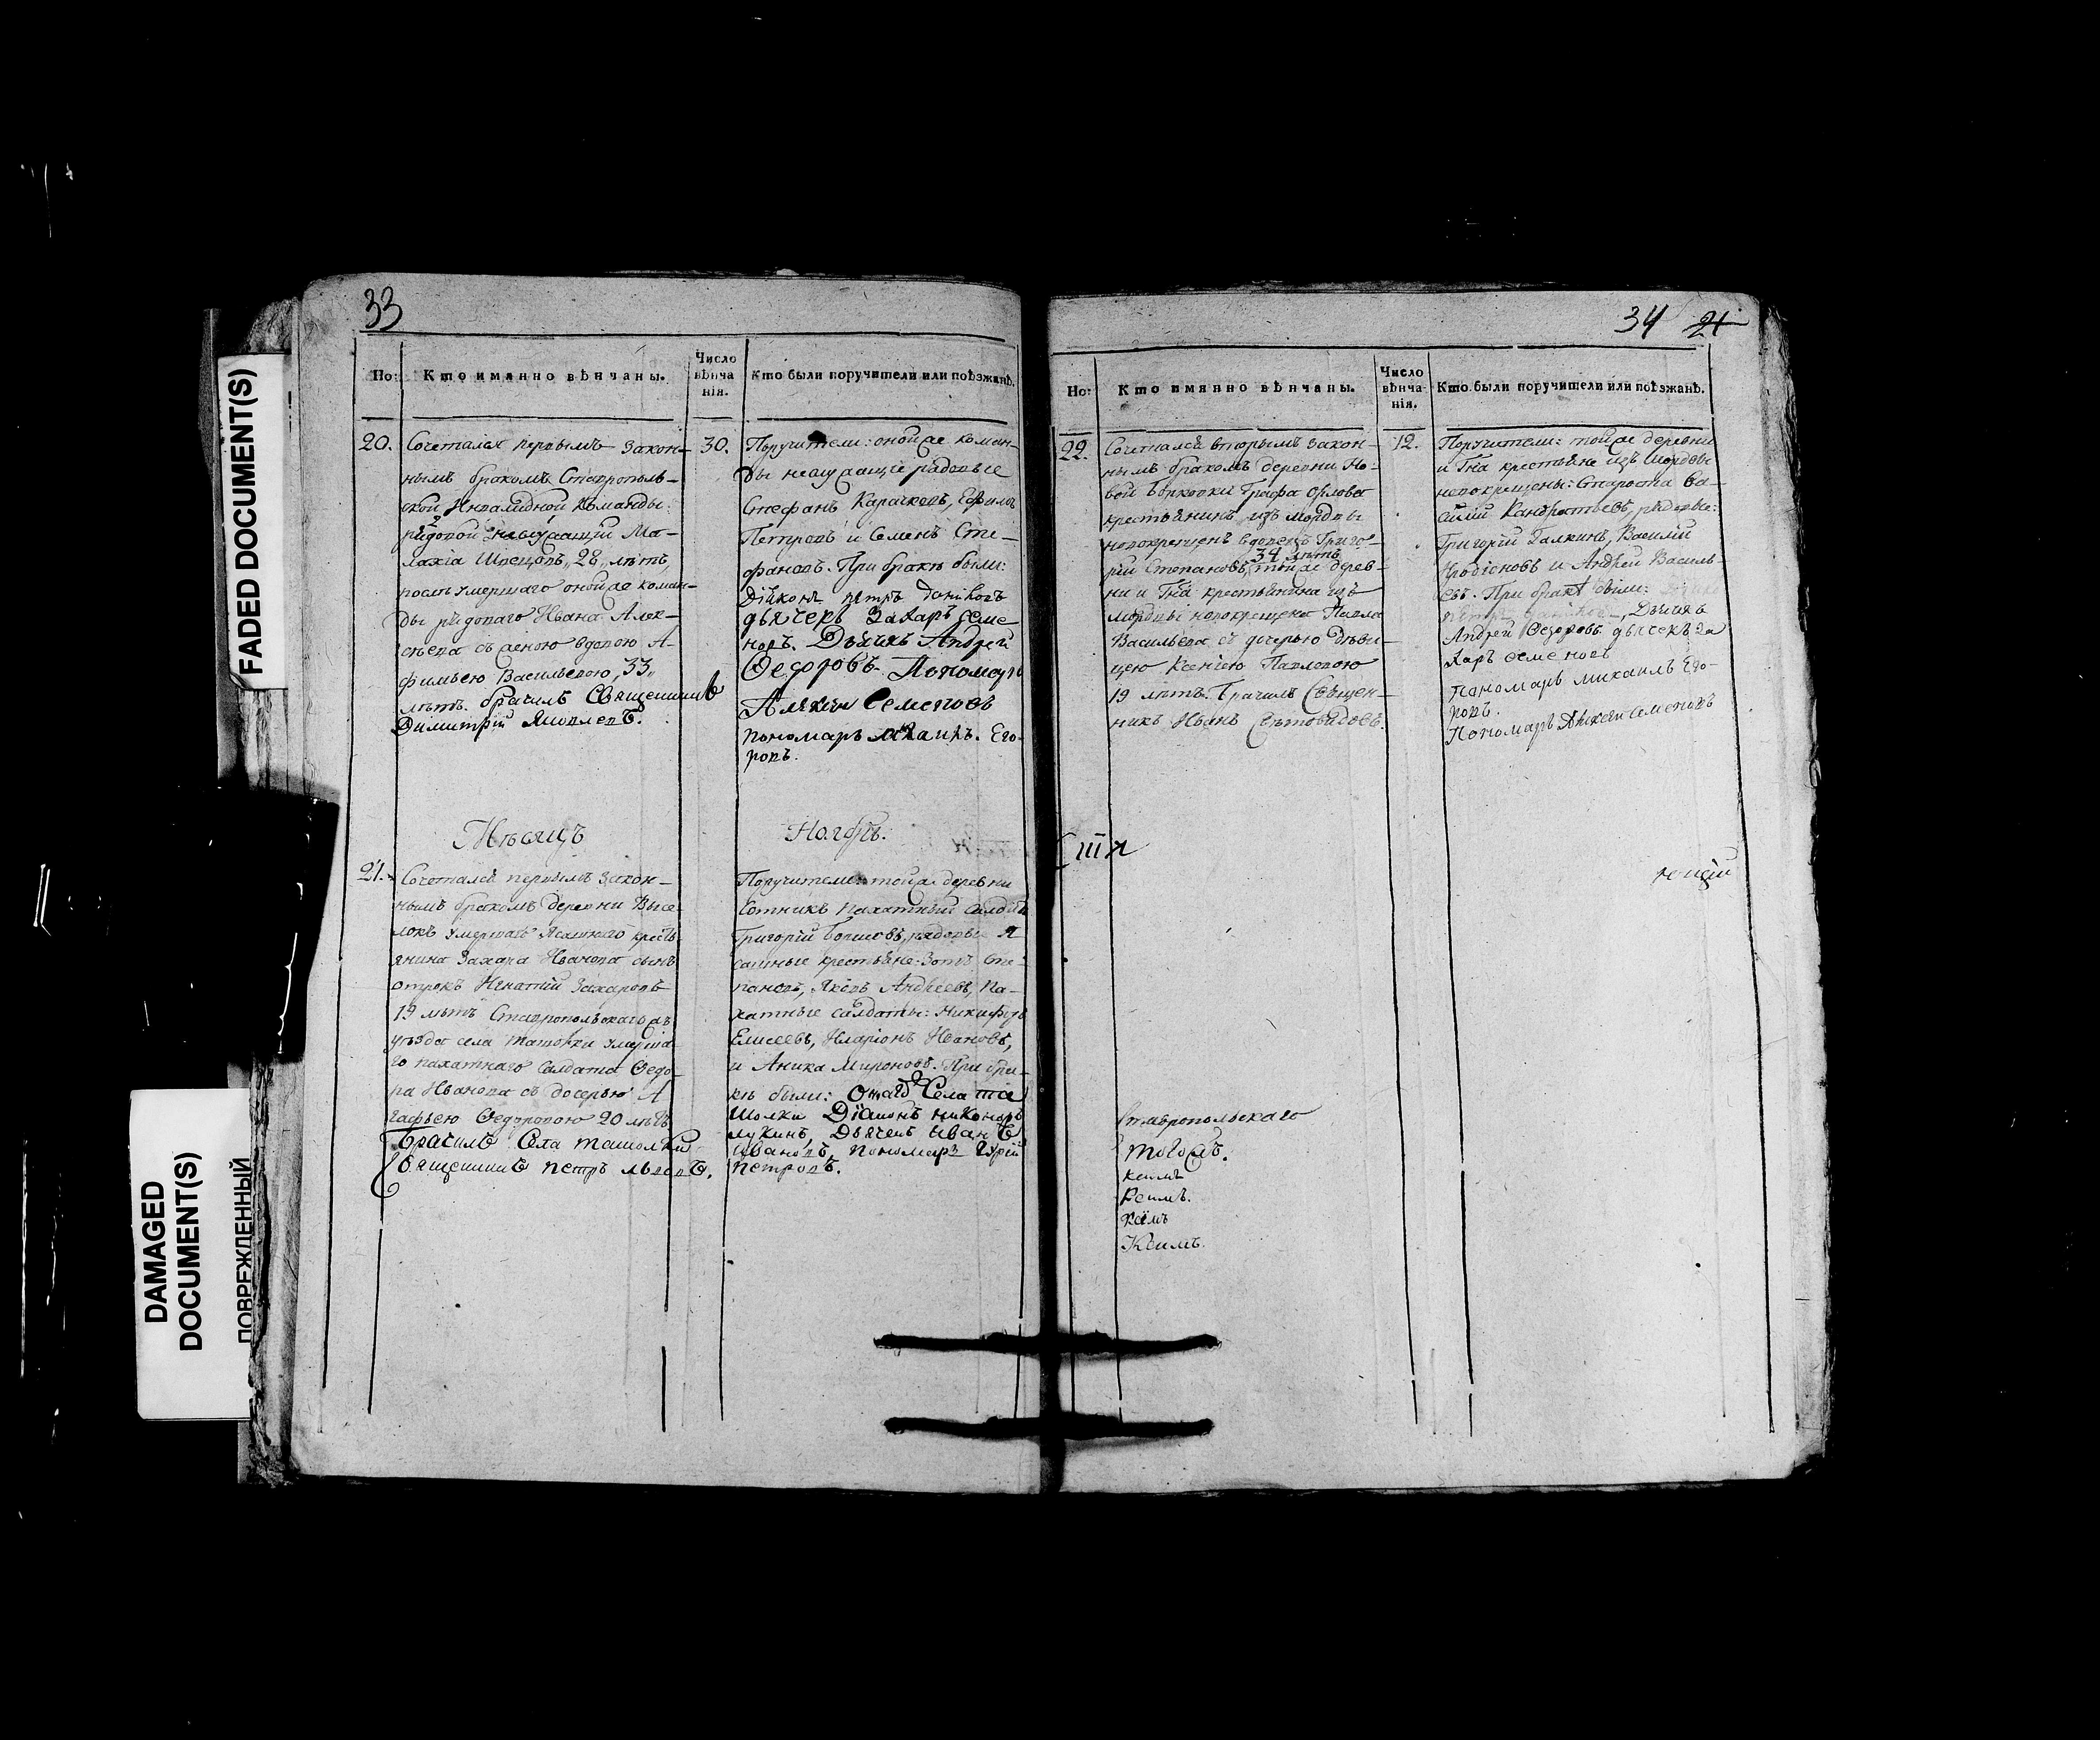 FADED DOCUMENT(S)
DAMAGED
DOCUMENT(S)
ПОВРЕЖДЕННЫЙ
33
Но:
Кто имянно вѣнчаны.
Число
вѣнча
нія.
Кто были поручители или поѣзжанѣ.
20.
Сочетался первымъ закон-
нымъ бракомъ Ставрополь-
ской Инвалидной команды
рядовой неслужащій Ма-
лахіа Швецовъ 28 лѣтъ,
послѣ умершаго оной же коман-
ды рядоваго Ивана Алек-
сѣева съ женою вдовою А-
фимьею Васильевою, 33
лѣтъ. бράчилъ Священникъ
Димитрій Яковлевъ.
30.
Поручители: оной же коман-
ды неслужащіе рядовые
Стефанъ Карачковъ, Ефимъ
Петровъ и Семенъ Сте-
фановъ. При бракѣ были:
Діаконъ петръ
дьячекъ Захаръ Семе
новъ. Дьячкъ Андрей
Ѳедоровъ. Пономарь
Алѣксѣи Семеновъ
пономарь михаилъ. Его-
ровъ.
Мѣсяцъ
Ноябрь.
21.
Сочетался первымъ закон-
нымъ бракомъ деревни Высе-
локъ умершаго Ясашнаго кресть
янина Захара Иванова сынъ
отрокъ Игнатій Захаровъ
19 лѣтъ Ставропольскаго жъ
уѣзда села Ташолки умерша-
го пахатнаго Салдата Ѳедо-
ра Иванова съ дочерью А
гафьею Ѳедоровою 20 лѣтъ
Брачилъ Села ташолки
Священникъ петръ львовъ.
Поручители: той же деревни
Сотникъ пахатный Салдатъ
Григорій Борисовъ, рядовые Я
сашные крестьяне: Зотъ Сте-
пановъ, Яковъ Андреевъ, Па-
хатные салдаты: Никифоръ
Елисеевъ, Иларіонъ Ивановъ,
и Аника Мироновъ. При бра-
кѣ были: Онаго Села та
шолки Діаконъ никоноръ
лукинъ, Дьячекъ иванъ
ивановъ, пономарь Гурій
петровъ.
34 21
Но:
Кто имянно вѣнчаны.
Число
вѣнча-
нія.
Кто были поручители или поѣзжанѣ.
22.
Сочетался вторымъ закон-
нымъ бракомъ деревни Но-
вой Борковки Графа Орлова
крестьянинъ изъ мордвы
новокрещенъ вдовецъ Григо-
34 лѣтъ
рій Степановъ, той же дерев-
ни и Гна крестьянина изъ
мордвы новокрещена Павла
Васильева съ дочерью дѣви-
цею Ксеніею Павловою
19 лѣтъ. Брачилъ Священ-
никъ Иванъ Свѣтовидовъ.
12.
Поручители: той же деревни
и Гна крестьяне изъ Мордвы
новокрещены: Староста Ва-
силій Кандратьевъ, рядовые:
Григорій Галкинъ, Василій
Иродіоновъ и Андрей Василь-
евъ. При бракѣ были:
Дьячкъ
Андрей Ѳедоровъ. дьячекъ за
харъ семеновъ
пономарь михаилъ Его-
ровъ.
Пономарь Алѣксѣи Семеновъ
Ставропольскаго
тогожъ.
кеимъ
Кеимъ.